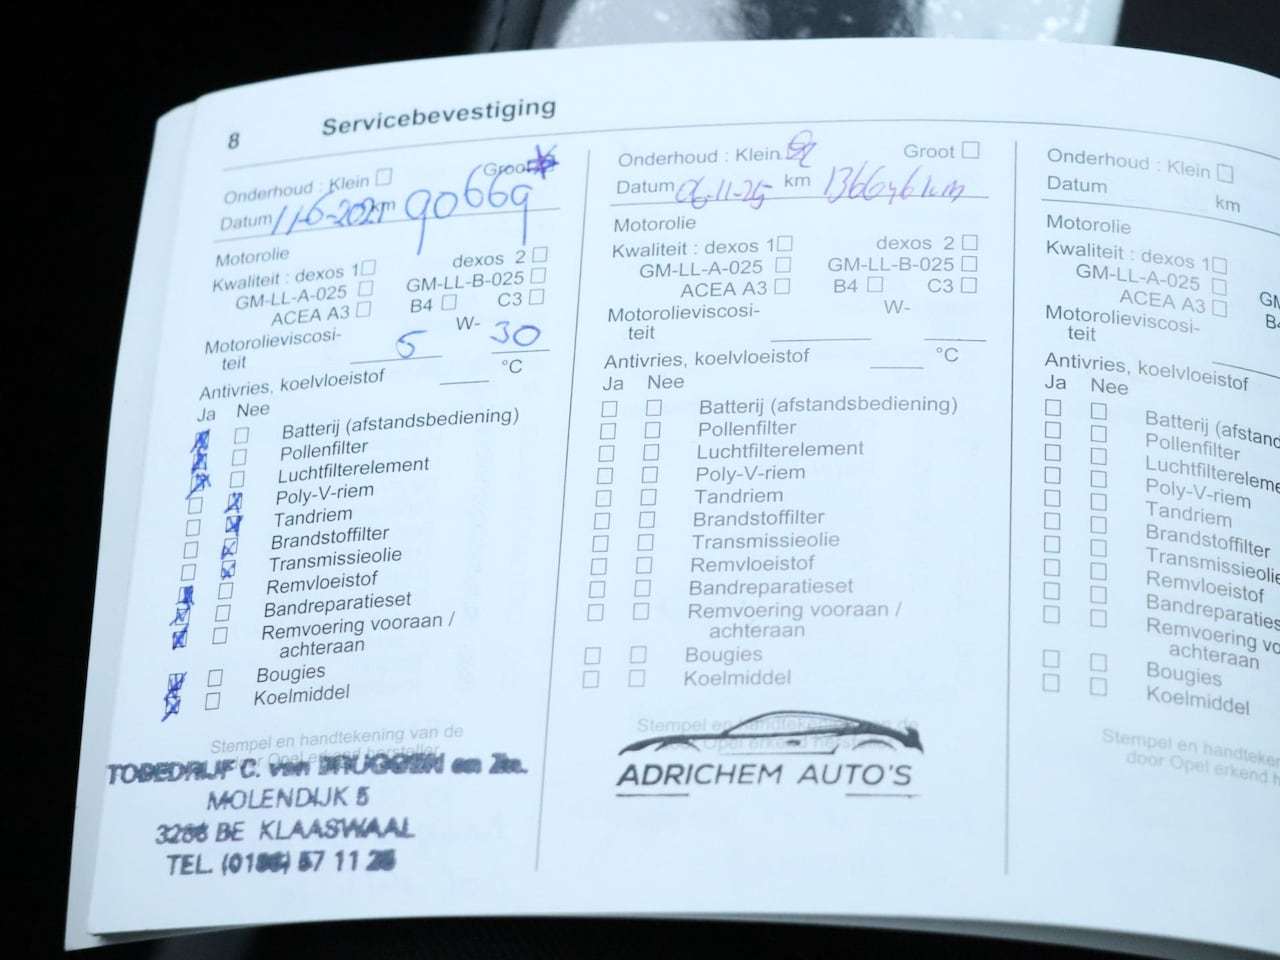 8 Servicebevestiging
Onderhoud : Klein ☐ Groot
Datum 11-6-2021 km 90669
Motorolie
Kwaliteit : dexos 1 ☐ dexos 2 ☐
GM-LL-A-025 ☐ GM-LL-B-025 ☐
ACEA A3 ☐ B4 ☐ C3 ☐
Motorolieviscosi-
teit 5 W- 30
Antivries, koelvloeistof °C
Ja Nee
Batterij (afstandsbediening)
Pollenfilter
Luchtfilterelement
Poly-V-riem
Tandriem
Brandstoffilter
Transmissieolie
Remvloeistof
Bandreparatieset
Remvoering vooraan /
achteraan
Bougies
Koelmiddel
Stempel en handtekening van de
door Opel erkend hersteller
C. van BRUGGEN en Zn.
MOLENDIJK 5
BE KLAASWAAL
TEL. 57 11
Onderhoud : Klein Groot ☐
Datum 06-11-25 km
Motorolie
Kwaliteit : dexos 1 ☐ dexos 2 ☐
GM-LL-A-025 ☐ GM-LL-B-025 ☐
ACEA A3 ☐ B4 ☐ C3 ☐
Motorolieviscosi- W-
teit
Antivries, koelvloeistof °C
Ja Nee
Batterij (afstandsbediening)
Pollenfilter
Luchtfilterelement
Poly-V-riem
Tandriem
Brandstoffilter
Transmissieolie
Remvloeistof
Bandreparatieset
Remvoering vooraan /
achteraan
Bougies
Koelmiddel
Stempel en handtekening van de
door Opel erkend hersteller
ADRICHEM AUTO'S
Onderhoud : Klein ☐
Datum km
Motorolie
Kwaliteit : dexos 1 ☐
GM-LL-A-025 ☐ GM
ACEA A3 ☐ B4
Motorolieviscosi-
teit
Antivries, koelvloeistof
Ja Nee
Batterij (afstand
Pollenfilter
Luchtfiltereleme
Poly-V-riem
Tandriem
Brandstoffilter
Transmissieolie
Remvloeistof
Bandreparaties
Remvoering vo
achteraan
Bougies
Koelmiddel
Stempel en handteken
door Opel erkend h